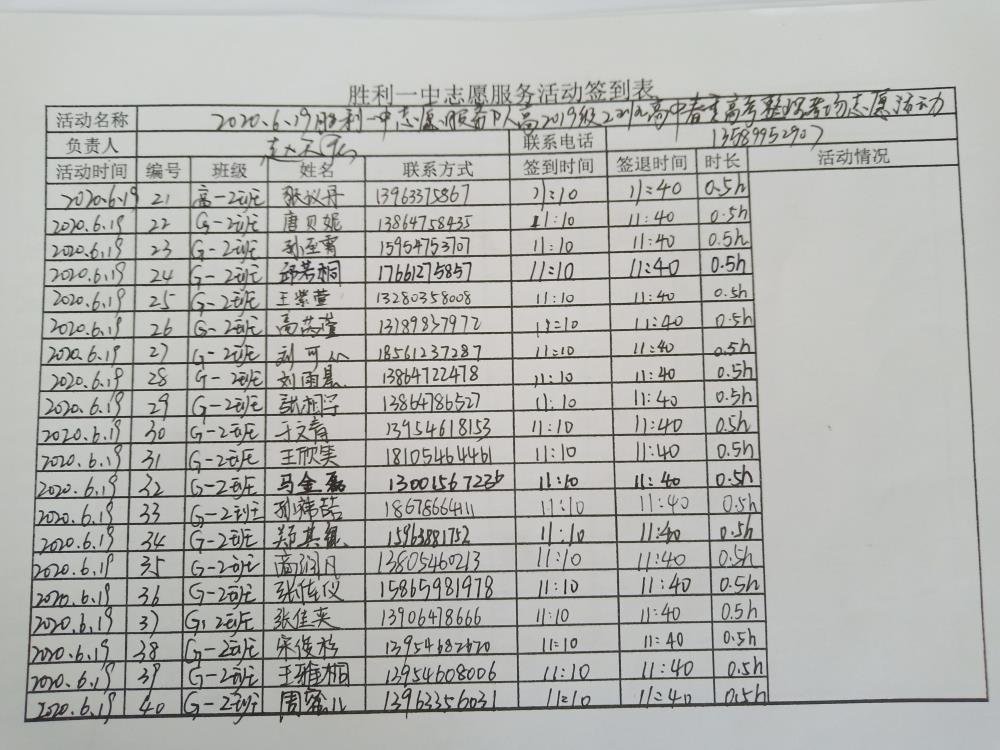 胜利一中志愿服务活动签到表
活动名称 2020.6.19胜利一中志愿服务队高2019级2班高中春季高考整理考场志愿活动
负责人 联系电话 13589952907
活动时间 编号 班级 姓名 联系方式 签到时间 签退时间 时长 活动情况
2020.6.19 21 高一2班 张仪丹 13963375867 11:10 11:40 0.5h
2020.6.19 22 G-2班 唐贝妮 13864758435 11:10 11:40 0.5h
2020.6.19 23 G-2班 孙至霄 15954753707 11:10 11:40 0.5h
2020.6.19 24 G-2班 邱若桐 17661275857 11:10 11:40 0.5h
2020.6.19 25 G-2班 王紫萱 13280358008 11:10 11:40 0.5h
2020.6.19 26 G-2班 高 萱 13789837972 11:10 11:40 0.5h
2020.6.19 27 G-2班 刘可心 18561237287 11:10 11:40 0.5h
2020.6.19 28 G-2班 刘雨 13864722478 11:10 11:40 0.5h
2020.6.19 29 G-2班 相宇 13864786527 11:10 11:40 0.5h
2020.6.19 30 G-2班 于文青 13954618153 11:10 11:40 0.5h
2020.6.19 31 G-2班 王欣美 18105464461 11:10 11:40 0.5h
2020.6.19 32 G-2班 马金磊 13001567226 11:10 11:40 0.5h
2020.6.19 33 G-2班 孙祎喆 18678664111 11:10 11:40 0.5h
2020.6.19 34 G-2班 郑其 15963881752 11:10 11:40 0.5h
2020.6.19 35 G-2班 高润凡 13805460213 11:10 11:40 0.5h
2020.6.19 36 G-2班 张佳仪 15865981978 11:10 11:40 0.5h
2020.6.19 37 G-2班 张佳奕 13906478666 11:10 11:40 0.5h
2020.6.19 38 G-2班 宋俊杉 13954682620 11:10 11:40 0.5h
2020.6.19 39 G-2班 王雅桐 13954608006 11:10 11:40 0.5h
2020.6.19 40 G-2班 周 儿 13963356031 11:10 11:40 0.5h